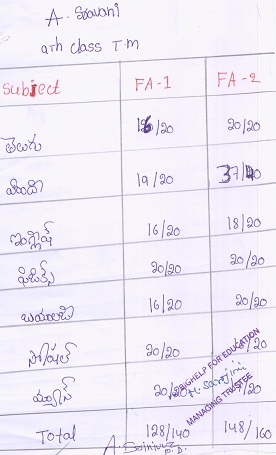 A. Sravani
9th class T.M
Subject FA-1 FA-2
తెలుగు 16/20 20/20
హిందీ 19/20 37/40
ఇంగ్లీష్ 16/20 18/20
ఫిజిక్స్ 20/20 20/20
బయాలజి 16/20 20/20
సోషల్ 20/20 /20
మ్యాథ్స్ 20/20 /20
BIGHELP FOR EDUCATION
MANAGING TRUSTEE
Total 128/140 148/160